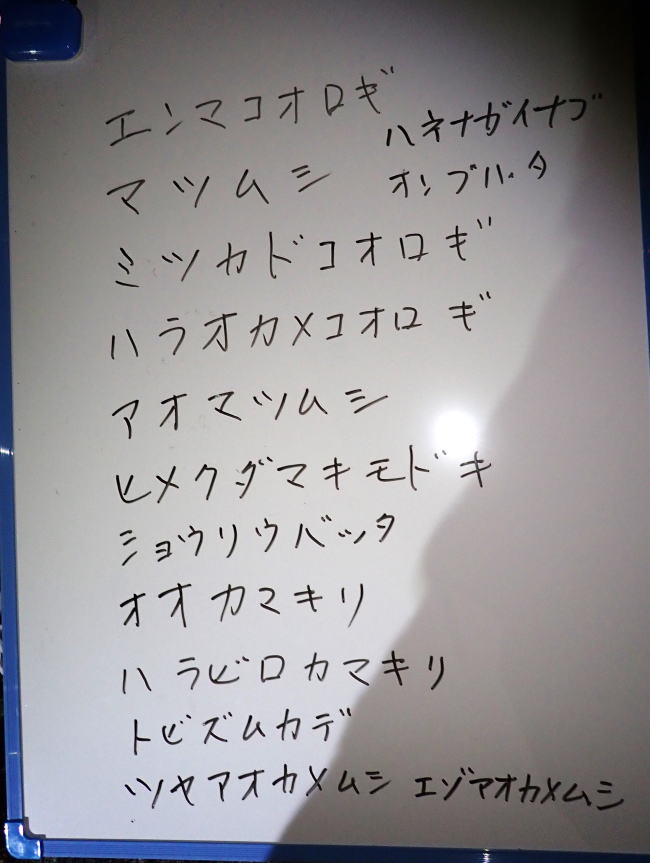 エンマコオロギ
ハネナガイナゴ
マツムシ
オンブバッタ
ミツカドコオロギ
ハラオカメコオロギ
アオマツムシ
ヒメクダマキモドキ
ショウリウバッタ
オオカマキリ
ハラビロカマキリ
トビズムカデ
ツヤアオカメムシ エゾアオカメムシ